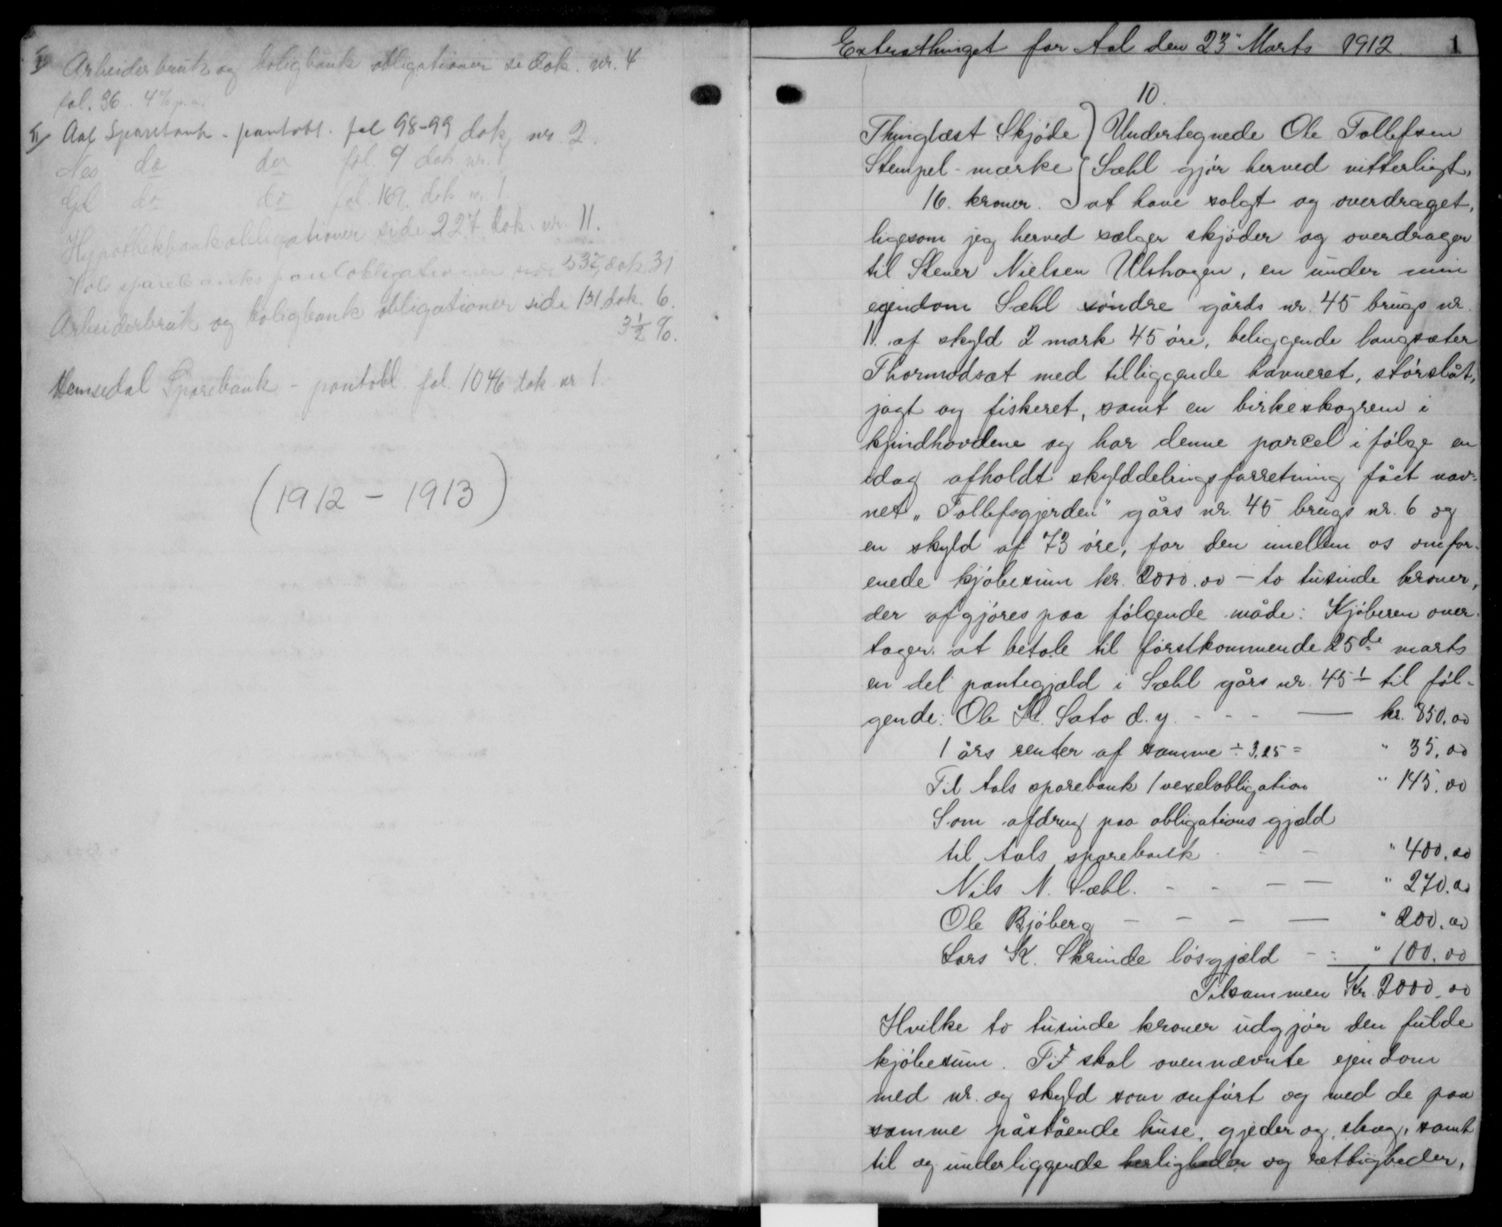 I) Arbeiderbruk og boligbank obligationer se dok. nr. 4
fol. 36. 4% p.a.
II) Aal Sparebank - pantobl. fol 98-99 dok. nr. 2.
Nes do do fol. 9 dok nr. 1
Gol do do fol. 169. dok nr. 1
Hypothekbankobligationer side 227 dok. nr. 11.
Hols sparebanks pantobligationer side 537 dok 31
Arbeiderbruk og boligbank obligationer side 131 dok. 6.
3½ %.
Hemsedal Sparebank - pantobl fol. 1046 dok nr 1.
(1912 - 1913)
Extrathinget for Aal den 23' Marts 1912. 1
10.
Thinglæst Skjöde } Undertegnede Ole Tollefsen
Stempel-mærke } Sæhl gjör herved vitterligt,
16. kroner. } at have solgt og overdraget,
ligesom jeg herved sælger skjöder og overdrager
til Stener Nielsen Ulshagen, en under min
ejendom Sæhl söndre gårds nr. 45 brugs nr.
1. af skyld 2 mark 45 öre, beliggende langsæter
Thormodsæt med tilliggende havneret, störslåt,
jagt og fiskeret, samt en birkeskogrem i
kjindhovdene og har denne parcel i fölge en
idag afholdt skylddelingsforretning fået nav-
net „Tollefsgjerden" gårs nr. 45 brugs nr. 6 og
en skyld af 73 öre, for den imellem os omfor-
enede kjöbesum kr. 2000.00 — to tusinde kroner,
der afgjöres paa fölgende måde: Kjöberen over-
tager at betale til förstkommende 25de marts
en del pantegjæld i Sæhl gårs nr. 45-1 til föl-
gende: Ole K. Sato d. y. - - - — kr. 850.00
1 års renter af samme ÷ 3,25 = " 35.00
Til Aals sparebank 1 vexelobligation " 145.00
Som afdrag paa obligations gjæld
til Aals sparebank - - " 400.00
Nils N. Sæhl. - - - — " 270.00
Ole Bjöberg - - - — " 200.00
Lars K. Skrinde lösgjæld - - " 100.00
Tilsammen Kr. 2000.00
Hvilke to tusinde kroner udgjör den fulde
kjöbesum. Ti skal ovennævnte ejendom
med nr. og skyld som anfört og med de paa
samme påstående huse, gjeder og skog, samt
til og underliggende herligheder og rettigheder,